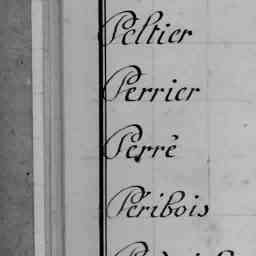 Peltier
Perrier
Perrè
Péribois